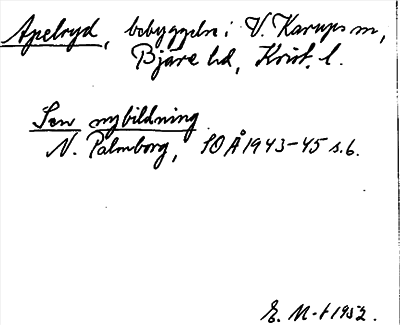 Apelryd, bebyggelse i V. Karups sn,
Bjäre hd, Krist. l.
Sen nybildning
N. Palmborg, SOÅ 1943-45 s. 6.
E. M-t 1952.